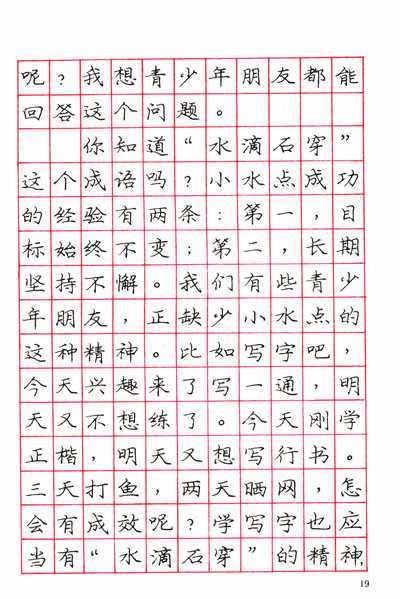 呢？我想青少年朋友都能
回答这个问题。
你知道“水滴石穿”
这个成语吗？小水点成功
的经验有两条：第一，目
标始终不变；第二，长期
坚持不懈。我们有些青少
年朋友，正缺少小水点的
这种精神。比如写字吧，
今天兴趣来了写一通，明
天又不想练了。今天刚学
正楷，明天又想写行书。
三天打鱼，两天晒网，怎
会有成效呢？学写字也应
当有“水滴石穿”的精神，
19